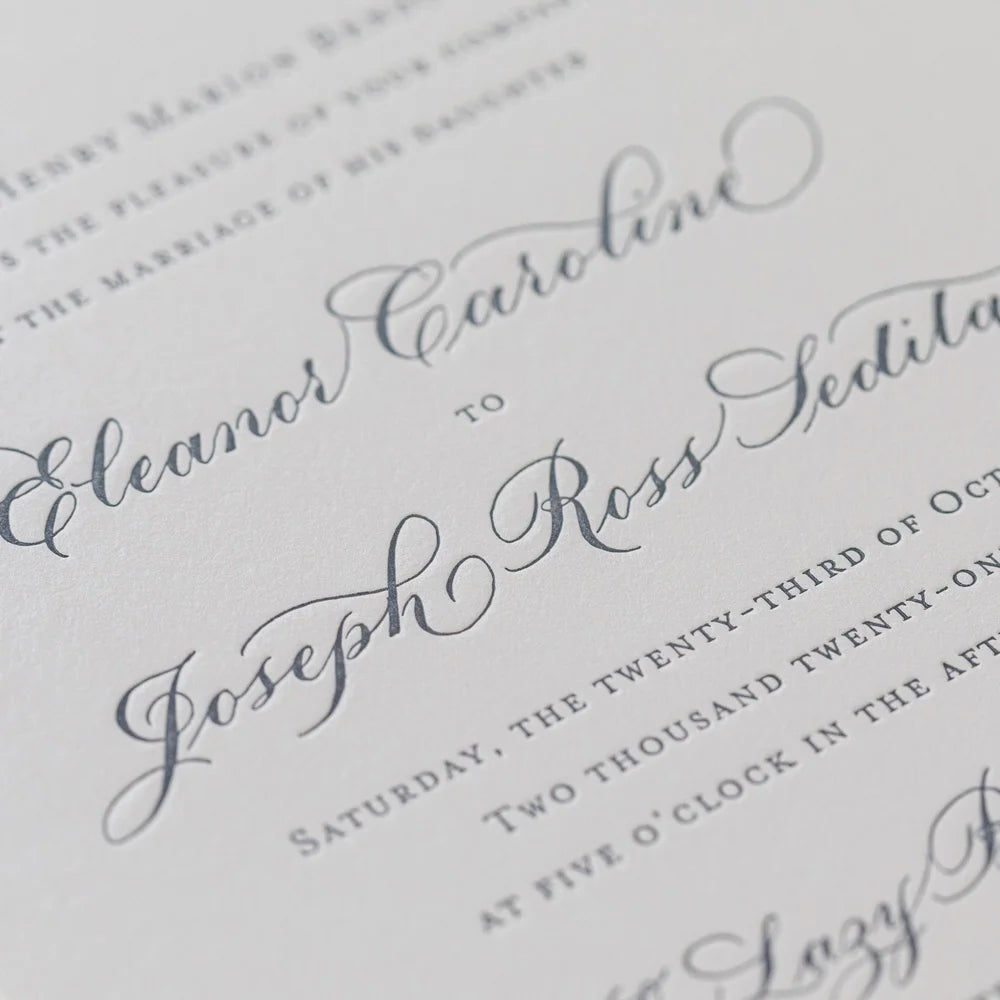 Henry Marion
the pleasure of your
the marriage of his daughter
Eleanor Caroline
to
Joseph Ross Sedita
Saturday, the twenty-third of Oct
Two thousand twenty-on
at five o'clock in the aft
Lazy